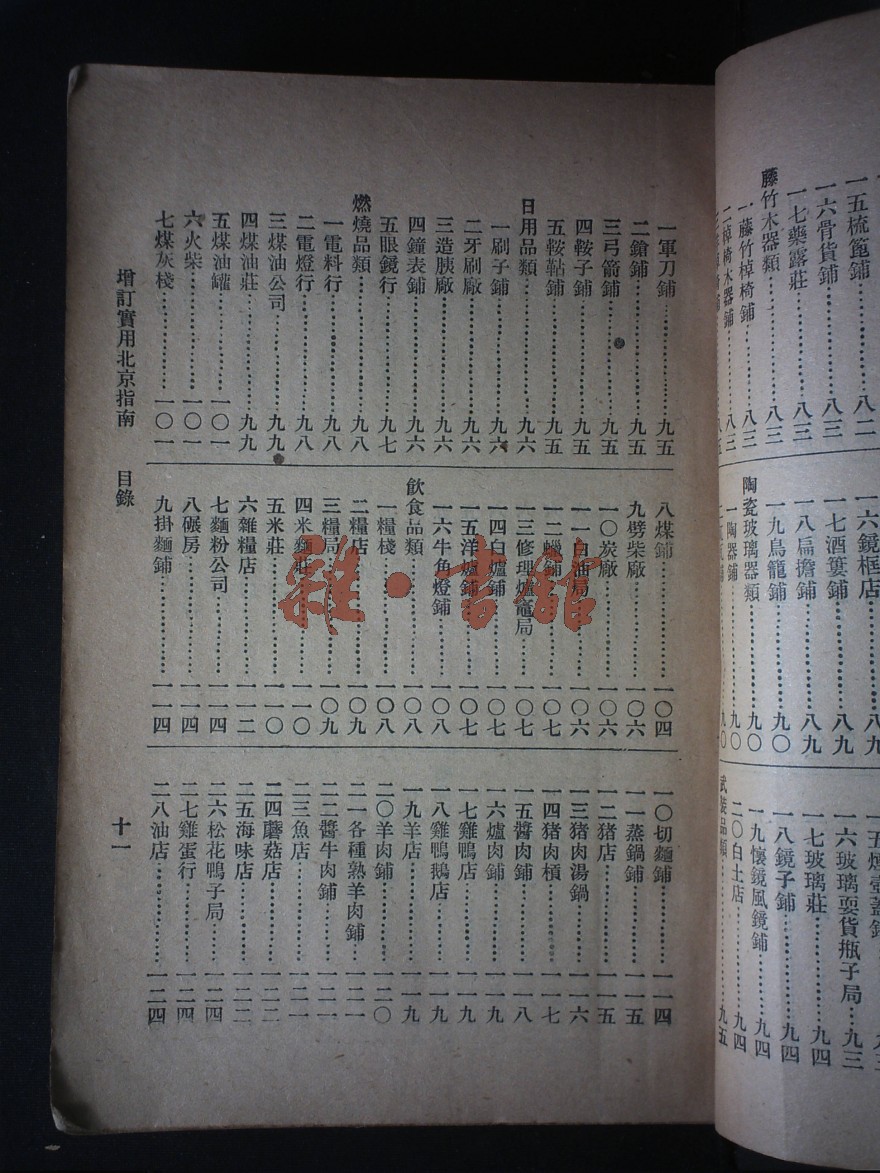 一五梳篦鋪……八二
一六骨貨鋪……八三
一七藥露莊……八三
藤竹木器類……八三
一藤竹棹椅鋪……八三
二棹椅木器鋪……八三
一六鏡框店……八九
一七酒簍鋪……八九
一八扁擔鋪……八九
一九鳥籠鋪……九〇
陶瓷玻璃器類……九〇
一陶器鋪……九〇
一六玻璃耍貨瓶子局…九三
一七玻璃莊……九四
一八鏡子鋪……九四
一九懷鏡風鏡鋪……九四
二〇白土店……九四
武裝品類……九五
一軍刀鋪……九五
二鎗鋪……九五
三弓箭鋪……九五
四鞍子鋪……九五
五鞍韂鋪……九五
日用品類……九六
一刷子鋪……九六
二牙刷廠……九六
三造胰廠……九六
四鐘表鋪……九六
五眼鏡行……九七
燃燒品類……九八
一電料行……九八
二電燈行……九八
三煤油公司……九九
四煤油莊……九九
五煤油罐……一〇一
六火柴……一〇一
七煤灰棧……一〇一
八煤鋪……一〇四
九劈柴廠……一〇六
一〇炭廠……一〇六
一一白油局……一〇六
一二蠟鋪……一〇七
一三修理爐竈局……一〇七
一四白爐鋪……一〇七
一五洋爐鋪……一〇七
一六牛角燈鋪……一〇八
飲食品類……一〇八
一糧棧……一〇八
二糧店……一〇九
三糧局……一〇九
四米麵莊……一一〇
五米莊……一一〇
六雜糧店……一一二
七麵粉公司……一一四
八碾房……一一四
九掛麵鋪……一一四
一〇切麵鋪……一一四
一一蒸鍋鋪……一一五
一二猪店……一一五
一三猪肉湯鍋……一一六
一四猪肉槓……一一七
一五醬肉鋪……一一八
一六爐肉鋪……一一九
一七雞鴨店……一一九
一八雞鴨鵝店……一一九
一九羊店……一一九
二〇羊肉鋪……一二〇
二一各種熟羊肉鋪……一二一
二二醬牛肉鋪……一二一
二三魚店……一二一
二四蘑菇店……一二二
二五海味店……一二二
二六松花鴨子局……一二四
二七雞蛋行……一二四
二八油店……一二四
增訂實用北京指南 目錄 十一
雜·書館